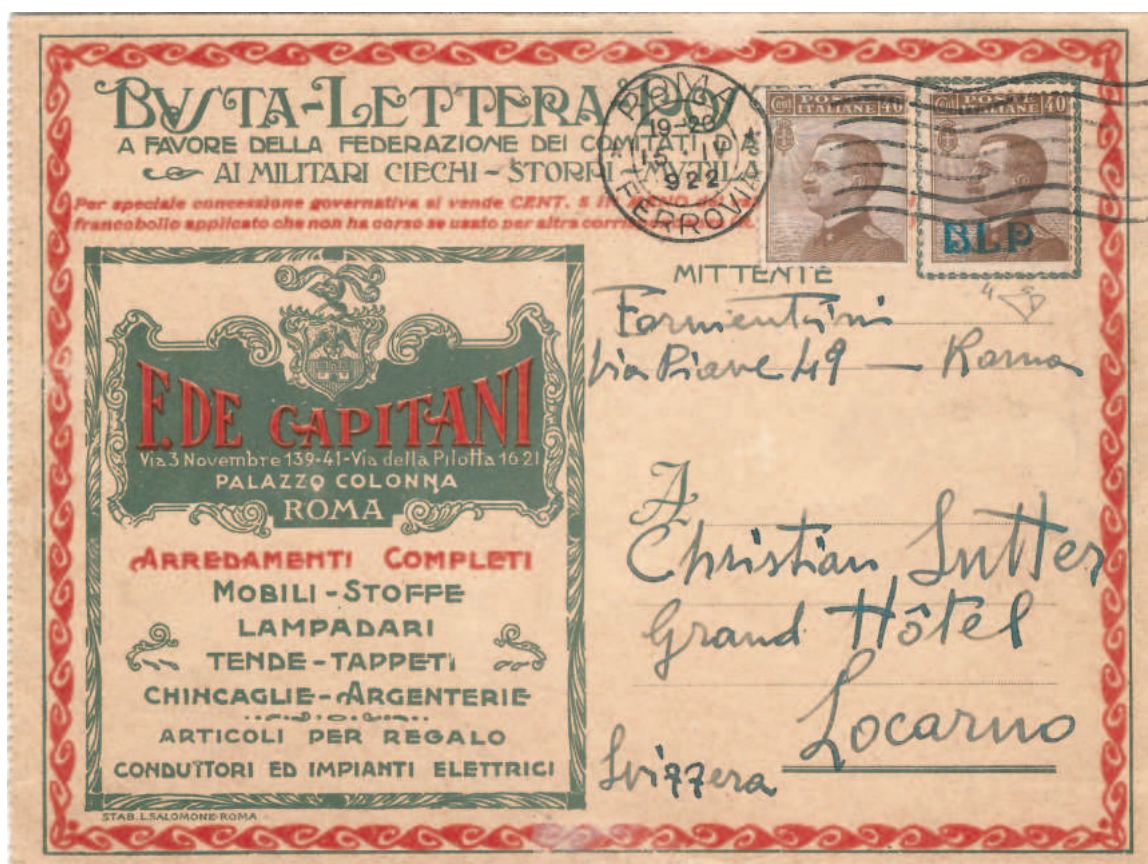 BVSTA-LETTERA
A FAVORE DELLA FEDERAZIONE DEI COMITATI D'A
AI MILITARI CIECHI - STORPI - MVTILA
Per speciale concessione governativa si vende CENT. 5 IN MENO del
francobollo applicato che non ha corso se usato per altra corris
ROMA
19-20
15 IV
922
FERROVIA
Cent POSTE ITALIANE 40
Cent POSTE ITALIANE 40
BLP
MITTENTE
Formentini
Via Piave 49 — Roma
F. DE CAPITANI
Via 3 Novembre 139-41-Via della Pilotta 16 21
PALAZZO COLONNA
ROMA
ARREDAMENTI COMPLETI
MOBILI - STOFFE
LAMPADARI
TENDE - TAPPETI
CHINCAGLIE - ARGENTERIE
ARTICOLI PER REGALO
CONDUTTORI ED IMPIANTI ELETTRICI
STAB. L. SALOMONE-ROMA
A
Christian Sutter
Grand Hôtel
Locarno
Svizzera